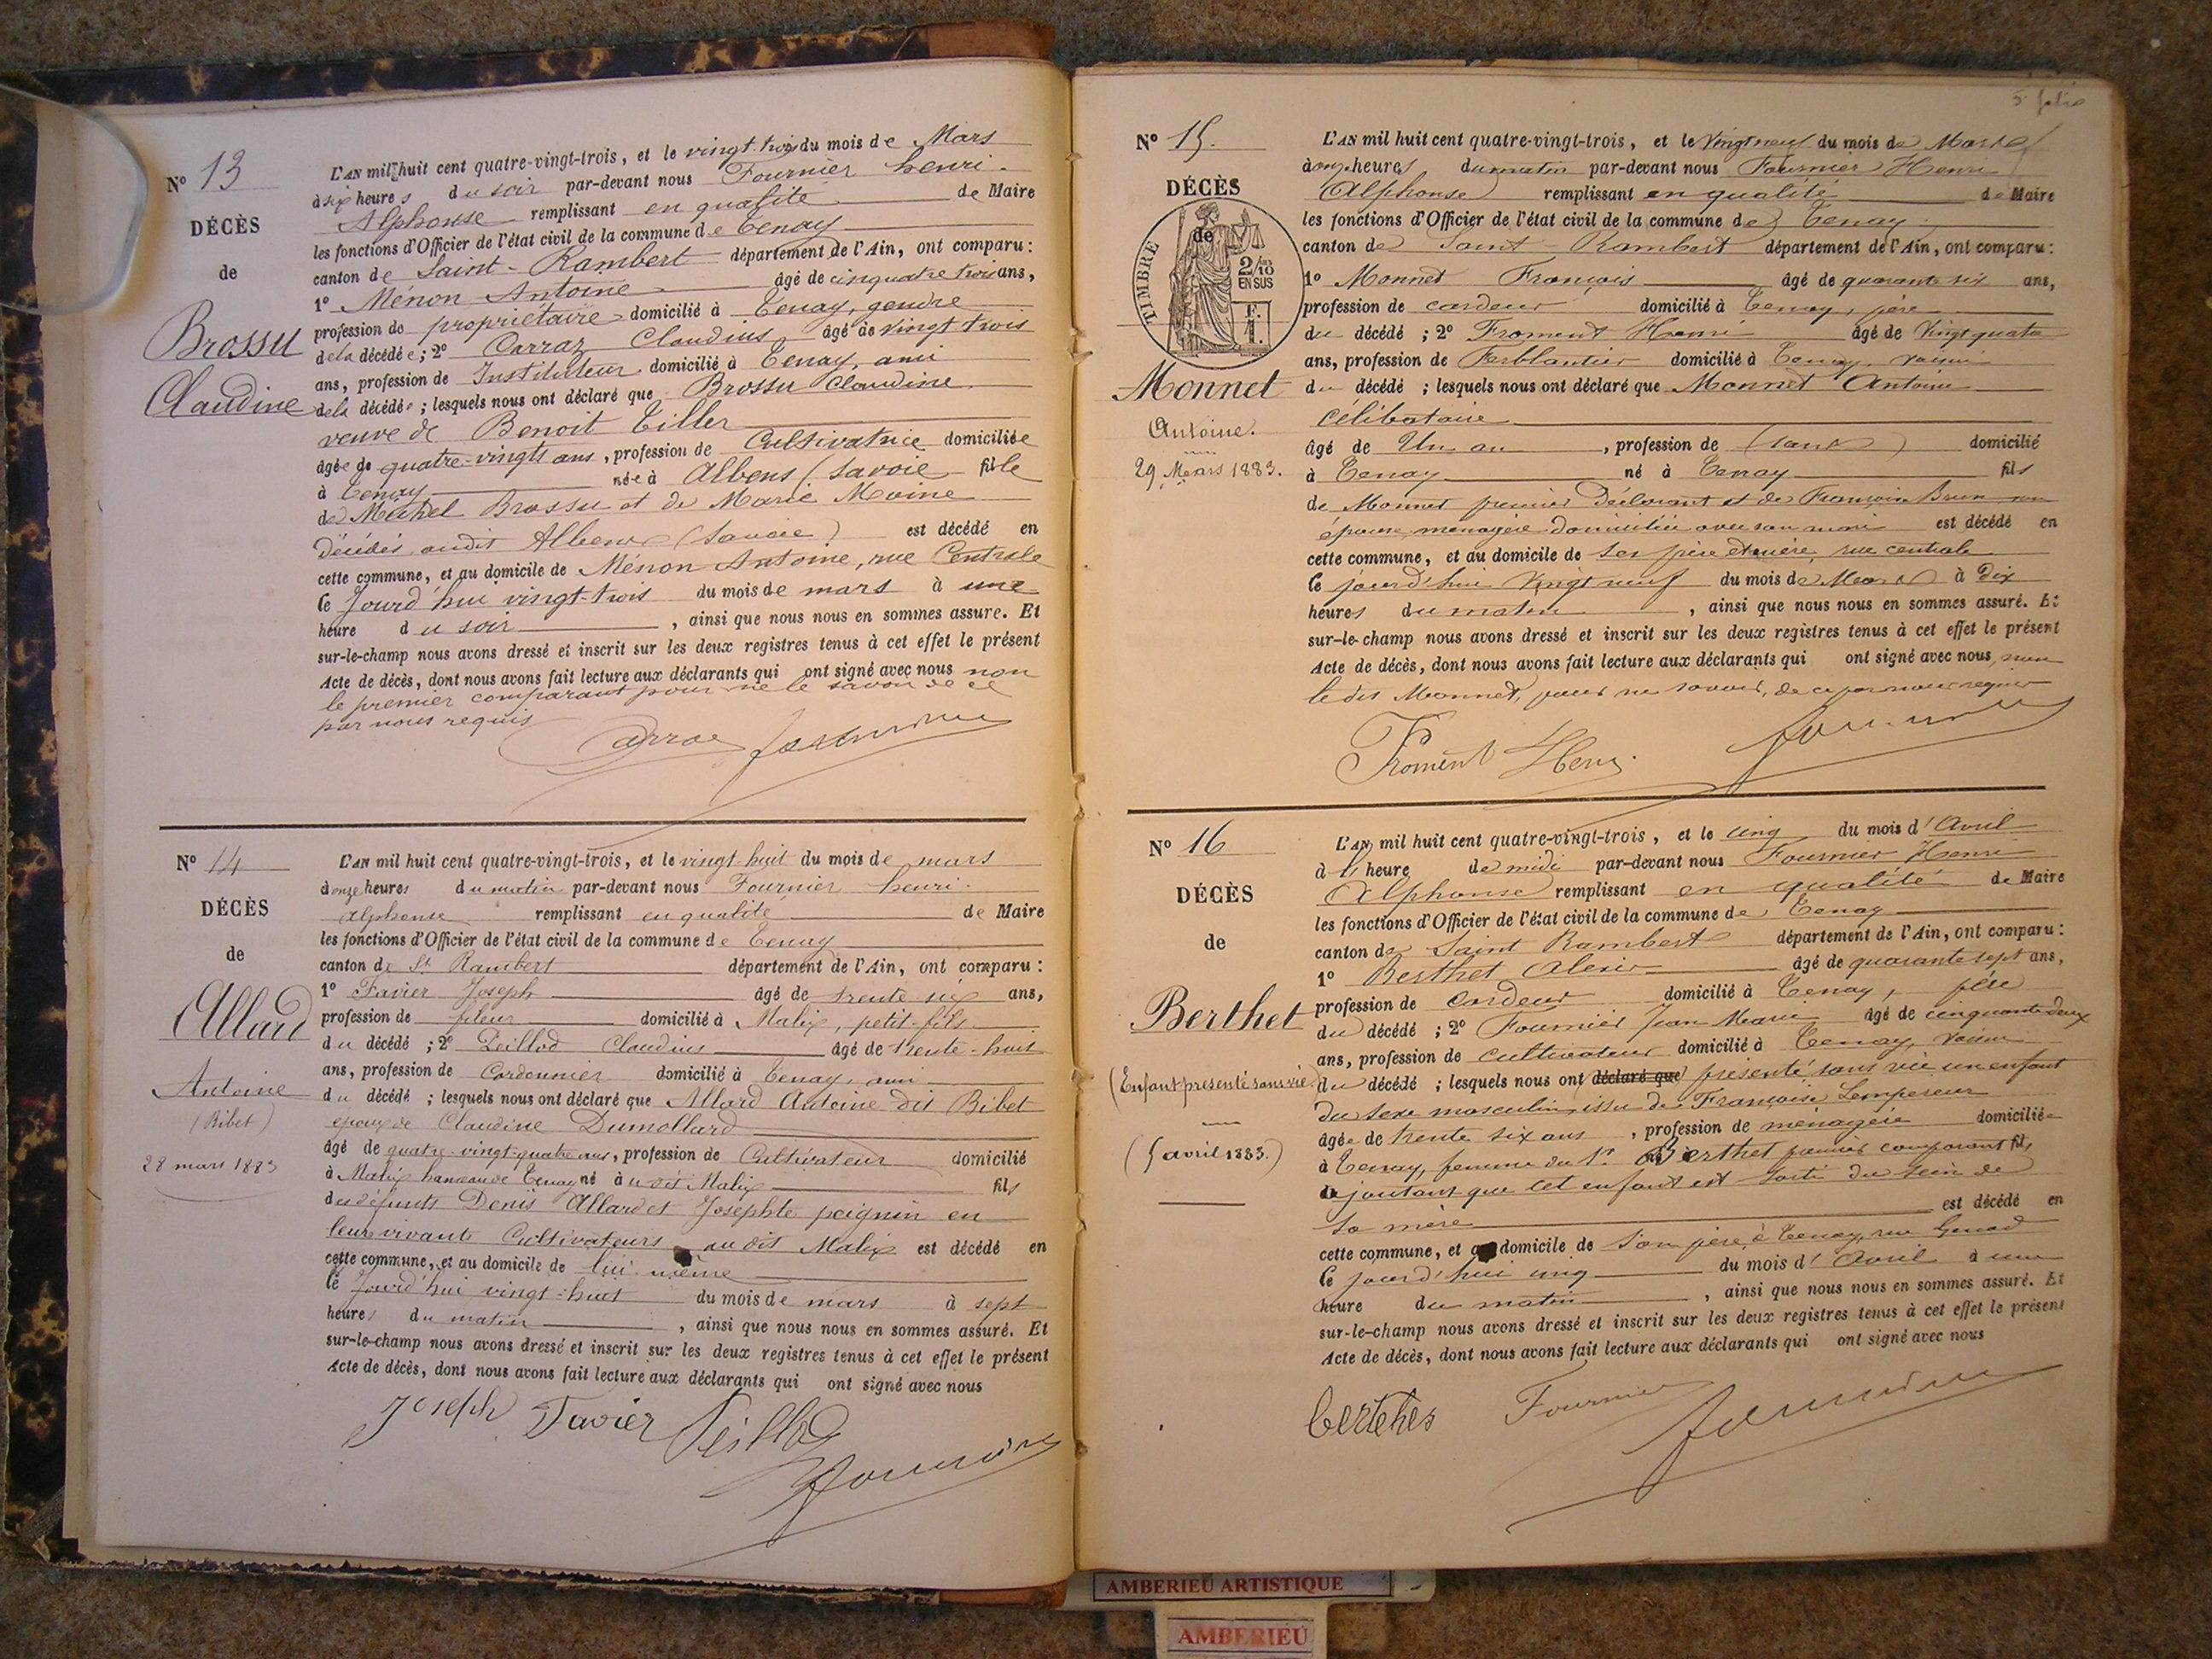 Nº 13
DÉCÈS
de
Brossu
Claudine
L'AN mil huit cent quatre-vingt-trois, et le vingt-trois du mois de Mars
à six heures du soir par-devant nous Fournier henri
Alphonse remplissant en qualité de Maire
les fonctions d'Officier de l'état civil de la commune de Tenay
canton de Saint-Rambert département de l'Ain, ont comparu :
1º Ménon Antoine âgé de cinquante trois ans,
profession de propriétaire domicilié à Tenay, gendre
de la décédée ; 2º Carraz Claudius âgé de vingt trois
ans, profession de Instituteur domicilié à Tenay, ami
de la décédée ; lesquels nous ont déclaré que Brossu Claudine
veuve de Benoit Tiller
âgée de quatre-vingts ans, profession de Cultivatrice domiciliée
à Tenay née à Albens (Savoie fille
de Michel Brossu et de Marie Moine
décédés audit Albens (Savoie) est décédé en
cette commune, et au domicile de Ménon Antoine, rue Centrale
le Jourd'hui vingt-trois du mois de mars à une
heure du soir, ainsi que nous nous en sommes assuré. Et
sur-le-champ nous avons dressé et inscrit sur les deux registres tenus à cet effet le présent
Acte de décès, dont nous avons fait lecture aux déclarants qui ont signé avec nous non
le premier comparant pour ne le savoir de ce
par nous requis
Carraz Fournier
Nº 14
DÉCÈS
de
Allard
Antoine
(Bibet)
28 mars 1883
L'AN mil huit cent quatre-vingt-trois, et le vingt-huit du mois de mars
à onze heures du matin par-devant nous Fournier henri
alphonse remplissant en qualité de Maire
les fonctions d'Officier de l'état civil de la commune de Tenay
canton de St Rambert département de l'Ain, ont comparu :
1º Favier Joseph âgé de trente six ans,
profession de fileur domicilié à Malix, petit-fils
du décédé ; 2º Peillod Claudius âgé de trente-huit
ans, profession de Cordonnier domicilié à Tenay, ami
du décédé ; lesquels nous ont déclaré que Allard Antoine dit Bibet
époux de Claudine Dumollard
âgé de quatre-vingt-quatre ans, profession de Cultivateur domicilié
à Malix hameau de Tenay né àu dit Malix fils
des défunts Denis Allard et Josephte peignin en
leur vivant Cultivateurs au dit Malix est décédé en
cette commune, et au domicile de lui-même
le Jourd'hui vingt-huit du mois de mars à sept
heures du matin, ainsi que nous nous en sommes assuré. Et
sur-le-champ nous avons dressé et inscrit sur les deux registres tenus à cet effet le présent
Acte de décès, dont nous avons fait lecture aux déclarants qui ont signé avec nous
Joseph Favier Peillod
Fournier
5e folio
Nº 15.
DÉCÈS
de
TIMBRE
2/10
EN SUS
F.
1.
Monnet
Antoine.
29 Mars 1883.
L'AN mil huit cent quatre-vingt-trois, et le Vingt neuf du mois de Mars
à onze heures du matin par-devant nous Fournier Henri
Alphonse remplissant en qualité de Maire
les fonctions d'Officier de l'état civil de la commune de Tenay
canton de Saint-Rambert département de l'Ain, ont comparu :
1º Monnet François âgé de quarante six ans,
profession de cardeur domicilié à Tenay, père
du décédé ; 2º Froment Henri âgé de Vingt quatre
ans, profession de Ferblantier domicilié à Tenay, voisin
du décédé ; lesquels nous ont déclaré que Monnet Antoine
célibataire
âgé de Un an, profession de (sans) domicilié
à Tenay né à Tenay fils
de Monnet premier Déclarant et de Françoise Brun son
épouse, ménagère domiciliée avec son mari est décédé en
cette commune, et au domicile de ses père et mère, rue centrale
le jourd'hui Vingt neuf du mois de Mars à Dix
heures du matin, ainsi que nous nous en sommes assuré. Et
sur-le-champ nous avons dressé et inscrit sur les deux registres tenus à cet effet le présent
Acte de décès, dont nous avons fait lecture aux déclarants qui ont signé avec nous, non
le dit Monnet, pour ne savoir, de ce par nous requis
Froment Henri Fournier
Nº 16
DÉCÈS
de
Berthet
(Enfant présenté sans vie)
(5 avril 1883.)
L'AN mil huit cent quatre-vingt-trois, et le cinq du mois d'Avril
à l'heure de midi par-devant nous Fournier Henri
Alphonse remplissant en qualité de Maire
les fonctions d'Officier de l'état civil de la commune de Tenay
canton de Saint Rambert département de l'Ain, ont comparu :
1º Berthet Alexis âgé de quarante sept ans,
profession de Cardeur domicilié à Tenay, père
du décédé ; 2º Fournier Jean Marie âgé de cinquante deux
ans, profession de cultivateur domicilié à Tenay, voisin
du décédé ; lesquels nous ont déclaré que présenté sans vie un enfant
du sexe masculin, issu de Françoise Lempereur
âgée de trente six ans, profession de ménagère domiciliée
à Tenay, femme du Sr Berthet premier comparant fils
ajoutant que cet enfant est sorti du sein de
sa mère est décédé en
cette commune, et au domicile de son père à Tenay, rue
le jourd'hui cinq du mois d'Avril à une
heure du matin, ainsi que nous nous en sommes assuré. Et
sur-le-champ nous avons dressé et inscrit sur les deux registres tenus à cet effet le présent
Acte de décès, dont nous avons fait lecture aux déclarants qui ont signé avec nous
Fournier Fournier
AMBERIEU ARTISTIQUE
AMBERIEU